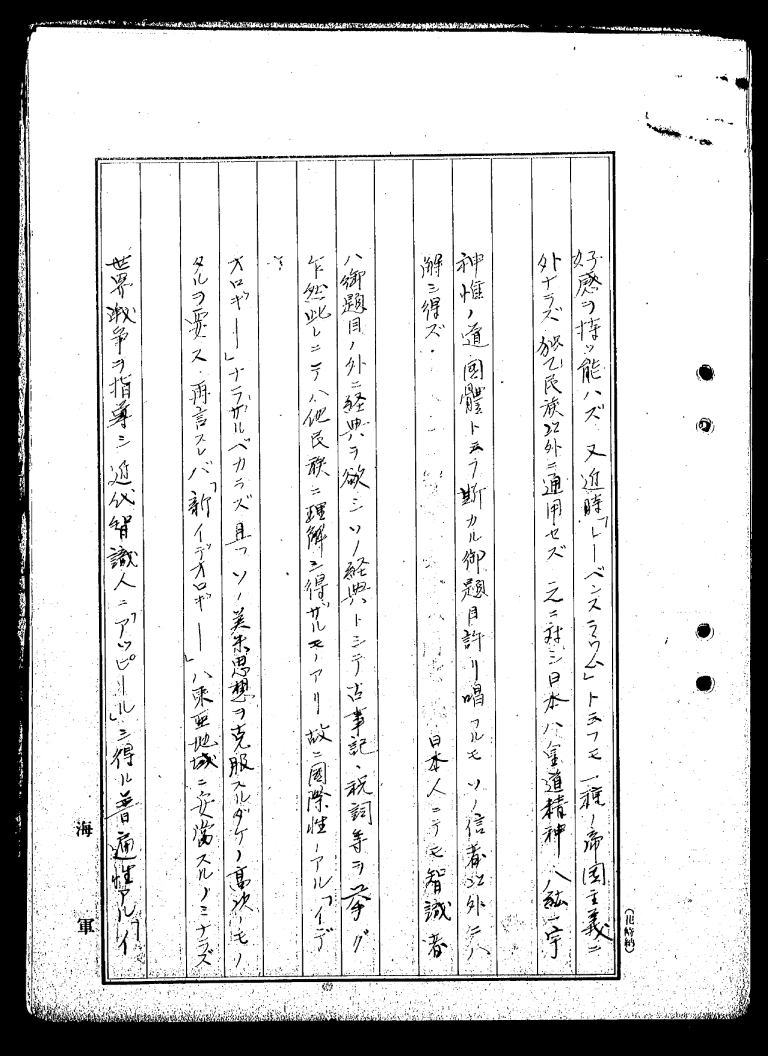 好感ヲ持ツ能ハズ 又近時「レーベンスラウム」ト云フモ一種ノ帝国主義ニ
外ナラズ 独乙民族以外ニ通用セズ 之ニ対シ日本ハ皇道精神 八紘一宇
神惟ノ道 國體ト云フ斯カル御題目許リ唱フルモ ソノ信者以外ニハ
解シ得ズ. 日本人ニテモ智識者
ハ御題目ノ外ニ経典ヲ欲シソノ経典トシテ古事記、祝詞等ヲ挙ゲ
乍然此レニテハ他民族ニ理解シ得ザルモノアリ 故ニ國際性ノアル「イデ
オロギー」ナラザルベカラズ 且ツソノ美米思想ヲ克服スルダケノ高次ノモノ
タルヲ要ス. 再言スレバ「新イデオロギー」ハ東亜地域ニ妥当スルノミナラズ
世界戦争ヲ指導シ近代智識人ニ「アッピール」シ得ル普遍性アル「イ
海軍